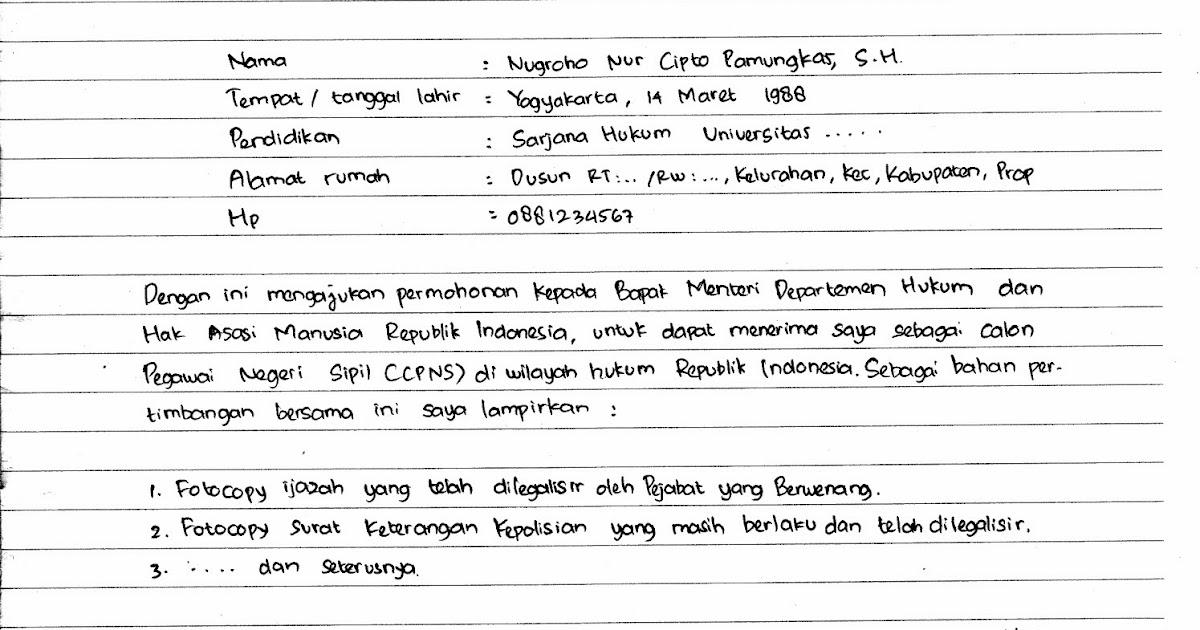 Nama : Nugroho Nur Cipto Pamungkas, S.H.
Tempat / tanggal lahir : Yogyakarta, 14 Maret 1988
Pendidikan : Sarjana Hukum Universitas .....
Alamat rumah : Dusun RT:.. /RW:..., Kelurahan, Kec, Kabupaten, Prop
Hp : 0881234567
Dengan ini mengajukan permohonan kepada Bapak Menteri Departemen Hukum dan
Hak Asasi Manusia Republik Indonesia, untuk dapat menerima saya sebagai Calon
Pegawai Negeri Sipil (CPNS) di wilayah hukum Republik Indonesia. Sebagai bahan per-
timbangan bersama ini saya lampirkan :
1. Fotocopy ijazah yang telah dilegalisir oleh Pejabat yang Berwenang.
2. Fotocopy Surat Keterangan Kepolisian yang masih berlaku dan telah dilegalisir.
3. ..... dan seterusnya.